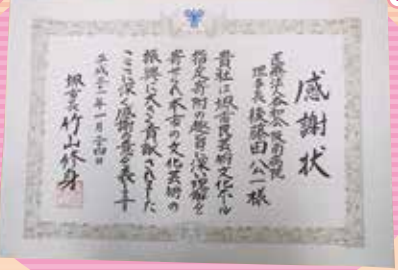 感謝状
医療法人 阪南病院
理事長 後藤田公一様
貴社は堺市民芸術文化ホール
指定寄附の趣旨に深い理解を
寄せられ本市の文化芸術の
振興に大きく貢献されました
ここに深く感謝の意を表します
平成三十一年一月二十四日
堺市長 竹山修身